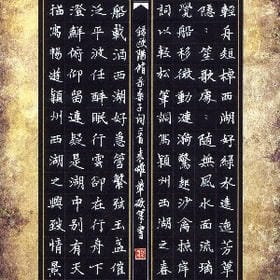 輕舟短棹西湖好綠水逶迤芳草
隱隱笙歌處處隨無風水面琉璃
覺船移微動漣漪驚起沙禽掠岸
以輕松筆調寫潁州西湖之春
錄歐陽脩采桑子詞二首
船載酒西湖好急管繁絃玉盞催
泛平波任醉眠行雲却在行舟下
澄鮮俯仰留連疑是湖中別有天
描寫暢遊潁州西湖之興致情景